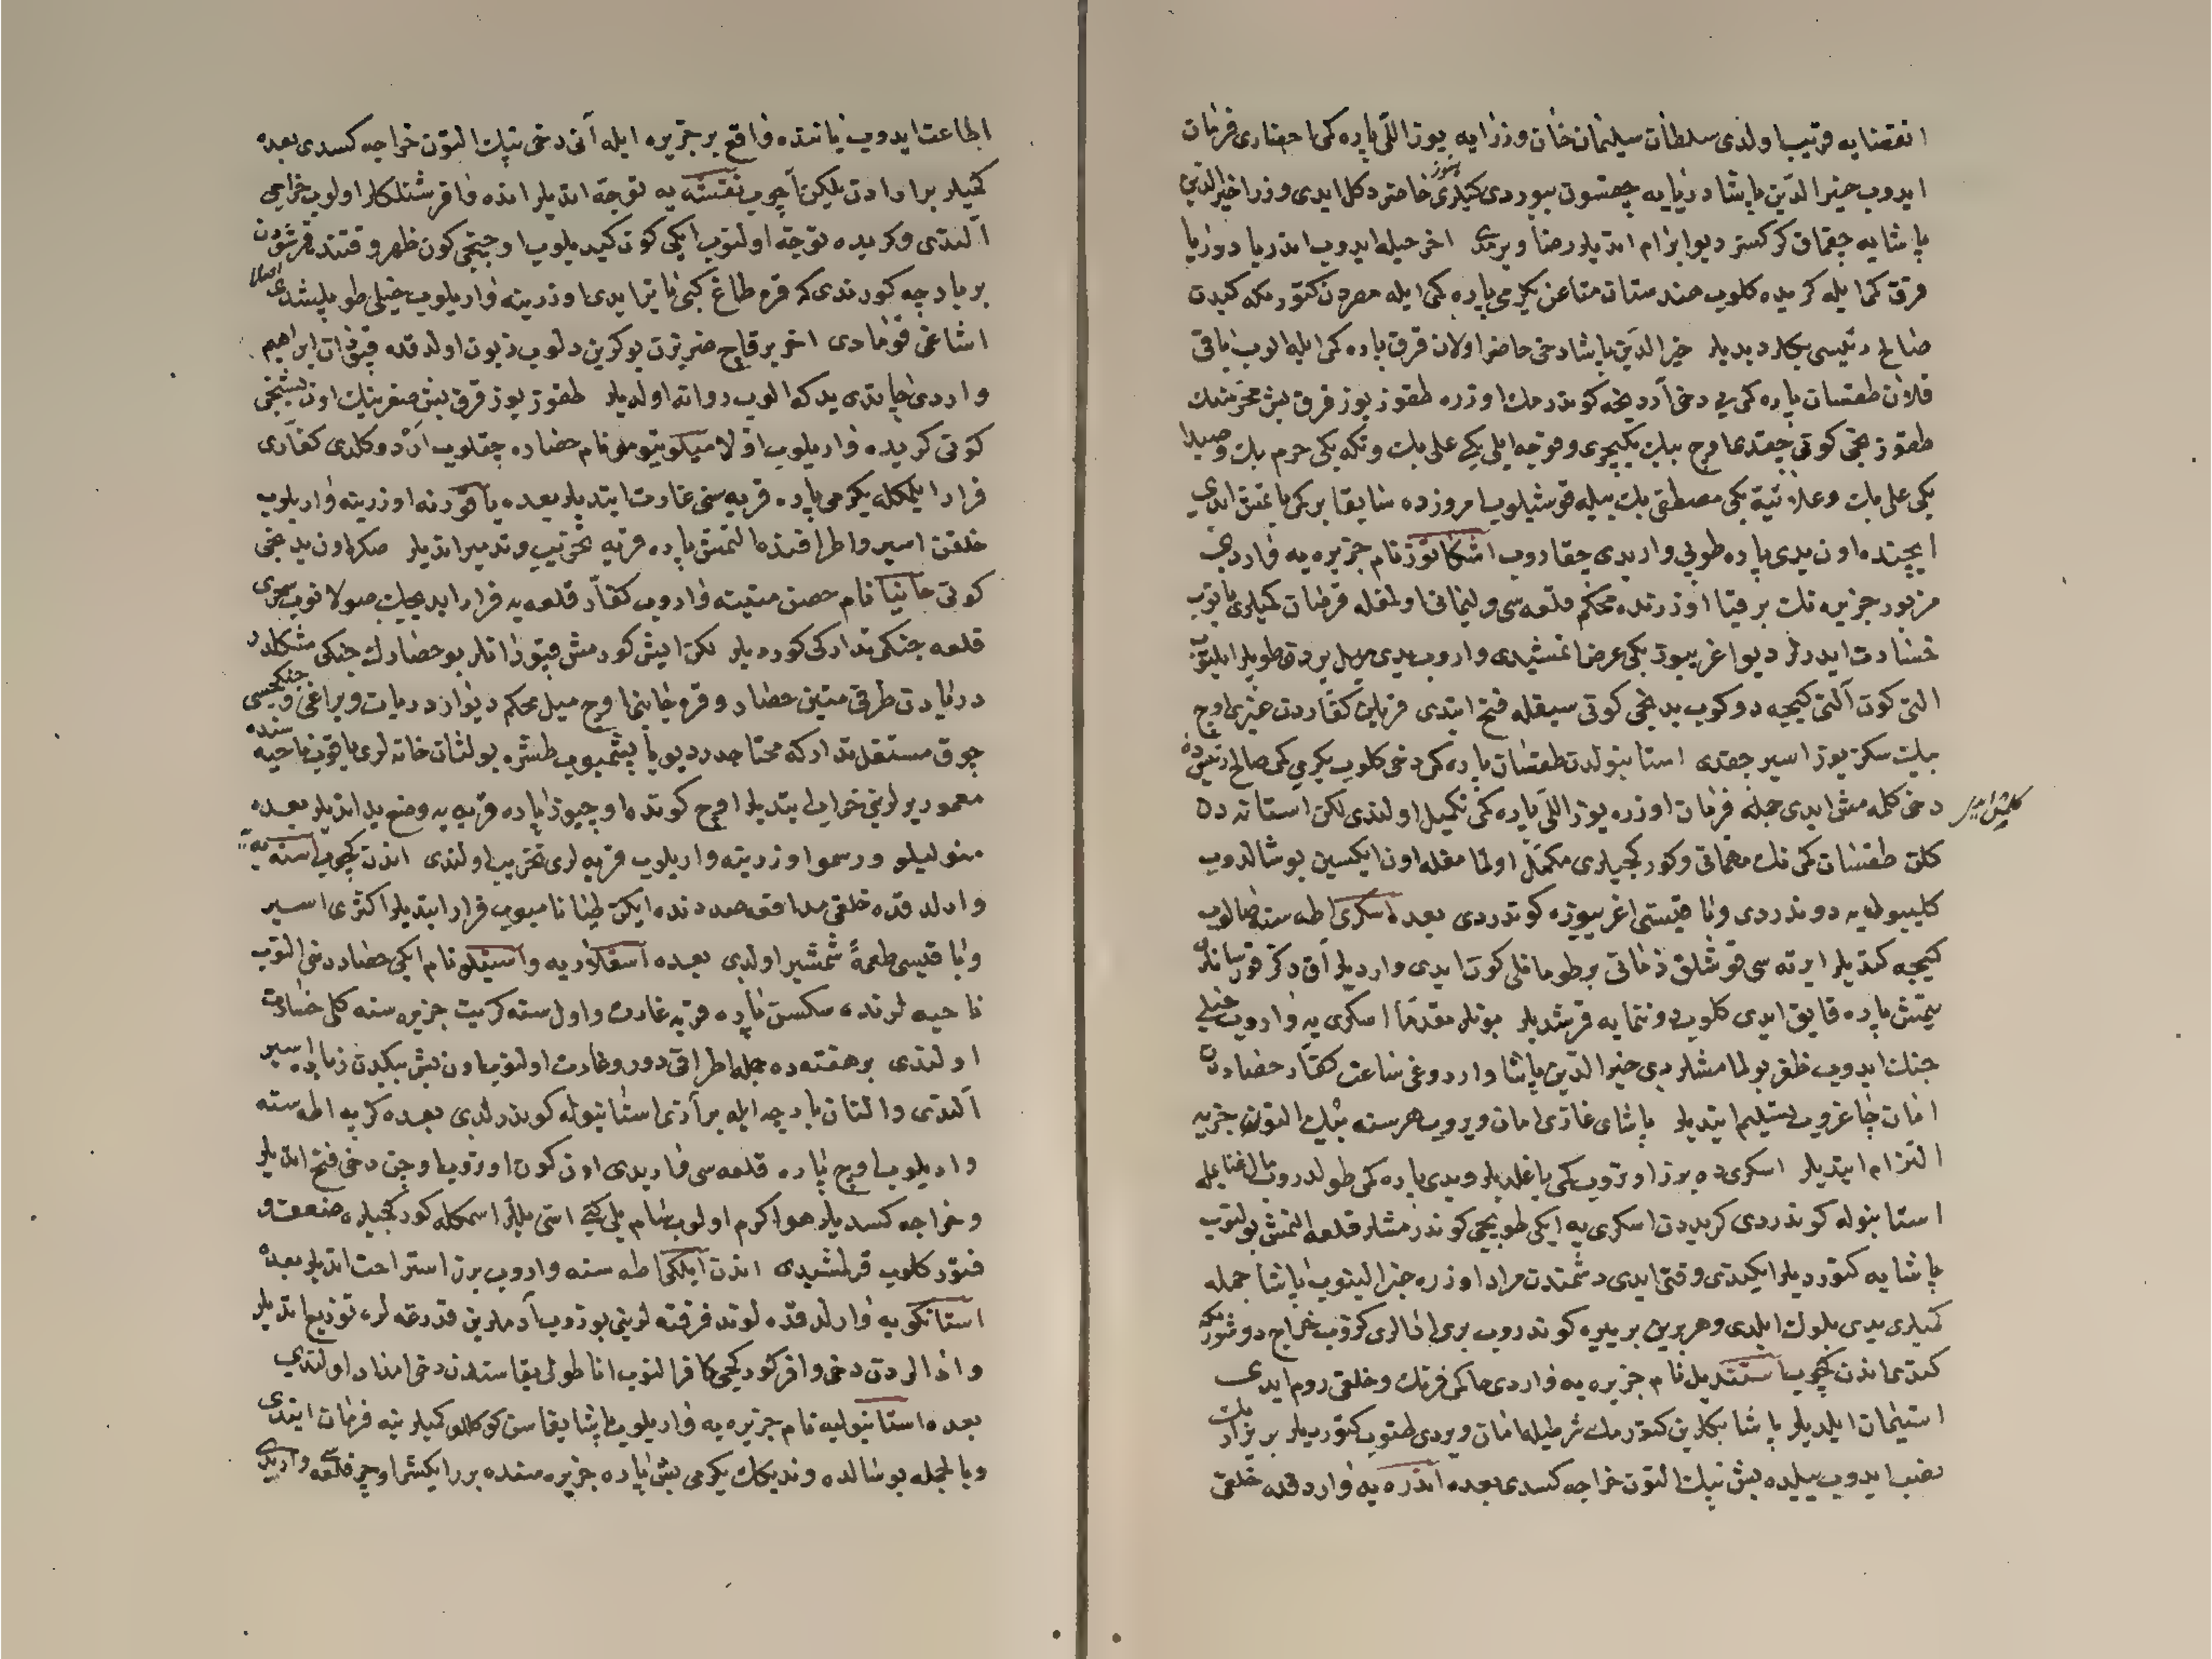 انقضایه قریب اولدی سلطان سلیمان خان وزرایه یوز اللی پاره کمی احضاری فرمان
ایدوب خیر الدین پاشا دریایه چقسون بیوردی کمیلری هنوز حاضر دکل ایدی وزرا خیر الدین
پاشایه چقمق کرکسز دیو ابرام اتدیلر رضا ویرمدی اخر حیله ایدوب اندریا دوریا
قرق کمی ایله کریده کلوب هندستان متاعن یکرمی پاره کمی ایله مصردن کتورمکه کیدن
صالح رئیسی بکلر دیدیلر خیر الدین پاشا دخی حاضر اولان قرق پاره کمی ایله الوب باقی
قلان طقسان پاره کمی یی دخی آردنجه کوندرمك اوزره طقوز یوز قرق بش محرمنك
طقوزنجی کونی چقدی اوچ بیك یکیچری و قوجه ایلی بکی علی بك و تکه بکی خرم بك و صیدا
بکی علی بك و علائیه بکی مصطفی بك بیله قوشیلوب امروزده سابقا بر کمی باتمش ایدی
ایچنده اون یدی پاره طوپی وار ایدی چقاروب اشکاتوز نام جزیره یه واردی
مزبور جزیره نك بر قیا اوزرنده محکم قلعه سی و لیمانی اولمغله قرصان کمیلری یاتوب
خسارت ایدرلر دیو اغریبوز بکی عرض اتمشیدی واروب یدی میل یردن طوپلر ایلتوب
التی کون آلتی کیجه دوکوب یدنجی کونی سیفله فتح ایتدی قزلین کفاردن غیری اوچ
بیك سکز یوز اسیر چقدی استانبولدن طقسان پاره کمی دخی کلوب یکرمی کمی صالح رئیس ده
دخی کلمه مش ایدی جمله فرمان اوزره یوز اللی پاره کمی تکمیل اولندی لکن استانه دن
کلمش ایدیلر
کلن طقسان کمی نك مهماتی و کورکجیلری مکمل اولمامغله اون ایکیسین بوشالدوب
کلیبولی یه دوندردی و باقیسنی اغریبوزه کوندردی بعده اسکری اطه سنه صالوب
کیجه کتدیلر ایرته سی قوشلق زمانی بر طومانلی کون ایدی واردیلر آق دکز قورسانلری
یتمش پاره قایق ایدی کلوب دوننمایه قرشدیلر بونلر مقدما اسکری یه واروب خیلی
جنك ایدوب ظفر بولمامشلردی خیر الدین پاشا واردوغی ساعت کفار حصاردن
امان چاغروب تسلیم ایتدیلر پاشای غازی امان ویروب هر سنه بیك التون جزیه
التزام ایتدیلر اسکری ده برز اوتروب کمی یاغلدیلر و یدی پاره کمی طولدروب مال غنایمله
استانبوله کوندردی کریددن اسکری یه ایکی طوپجی کوندرمشلر قلعه المنش بولنوب
پاشایه کتوردیلر ایکندی وقتی ایدی دشمندن مراد اوزره خبر الینوب پاشا جمله
کمیلری یدی بلوك ایلدی و هر برین بر یره کوندروب بری اطالری کزوب خراج دوشورمکه
کتدی اندن کچوب استندیل نام جزیره یه واردی حاکمی فرنك و خلقی روم ایدی
استیمان ایلدیلر پاشا بکلرین کتورمك شرطیله امان ویردی طتوب کتوردیلر بر یرار بك
نصب ایدوب ییلده بش بیك التون خراجه کسدی بعده اندره یه واردقده خلقی
اطاعت ایدوب یاننده واقع بر جزیره ایله آنی دخی بیك التون خراجه کسدی بعده
کمیلر برارادن یلکن آچوب نقشه یه توجه اتدیلر انده وافر شنلکلر اولوب خراجی
آلندی و کریده توجه اولنوب ایکی کون کیدیلوب اوچنجی کون ظهر وقتنده قرشودن
بر پارچه کورندی که قره طاغ کبی یاتر ایدی اوزرینه واریلوب خیلی طوپلشدی اصلا
اشاغی قومادی اخر بر قاچ ضربزن بوکرین دلوب زبون اولدقده قپودان ابراهیم
واردی چاتدی یدکه الوب روانه اولدیلر طقوز یوز قرق بش صفرینك اون بشنجی
کونی کریده واریلوب اولا میکوپوتومو نام حصاره چقلوب آردو کلدی کفاری
فرار ایلمکله یکرمی پاره قریه سنی غارت ایتدیلر بعده پاقورنه اوزرینه واریلوب
خلقن اسیر و اطرافنده التمش پاره قریه تخریب و تدمیر اتدیلر صکره اون یدنجی
کونی حانیا نام حصن متینه واروب کفار قلعه یه فرار ایدیجك صولانوب سحری
قلعه جنکی تدارکی کوردیلر لکن ایش کورمش قپودانلر بو حصارك جنکی مشکلدر
دریادن طرفی متین حصار و قره جانبنا اوچ میل محکم دیواردر یات و یراغی و جنکجیسی
چوق مستقل تدارکه محتاجدر دیو یاپشمیوب طشره بولنان خانه لری یاقوب ناحیه سنده
معمور یرلرینی خراب ایتدیلر اوچ کونده اوچیوز پاره قریه یه وضع ید اتدیلر بعده
منولیلو و رسمو اوزرینه واریلوب قریه لری تخریب اولندی اندن کچوب استیه یه
وارلدقده خلقی مدافعه صددنده ایکن طیانامیوب فرار ایتدیلر اکثری اسیر
و باقیسی طعمهٔ شمشیر اولدی بعده اسقلاریه و استیلو نام ایکی حصار دخی النوب
ناحیه لرنده سکسن پاره قریه غارت و اول سنه کریت جزیره سنه کلی خسارت
اولندی بر هفته ده جمله اطرافی دور و غارت اولنوب اون بش بیکدن زیاده اسیر
آلندی و التان بارچه ایله برآزی استانبوله کوندرلدی بعده کرپه اطه سنه
واریلوب اوچ پاره قلعه سی وار ایدی اون کون اوتروب اوچن دخی فتح اتدیلر
و خراجه کسدیلر هوا کرم اولوب شام یلی کبی استی یللر اسمکله کورکجیلره ضعف و
فتور کلوب قرلمشیدی اندن ایلکی اطه سنه واروب برز استراحت اتدیلر بعده
استانکویه وارلدقده لوند فرقته لرینی بوزوب آدملرین قدرغه لره توزیع اتدیلر
و اطالردن دخی وافر کورکجی کافر النوب اناطولی یقاسندن دخی امداد اولندی
بعده استانبولیه نام جزیره یه واریلوب پاشا یقاسن کوکللو کمیلرینه فرمان ایتدی
و بالجمله بو سالده وندیکك یکرمی بش پاره جزیره سنده برر ایکیشر اوچر قلعه سی وار ایدی